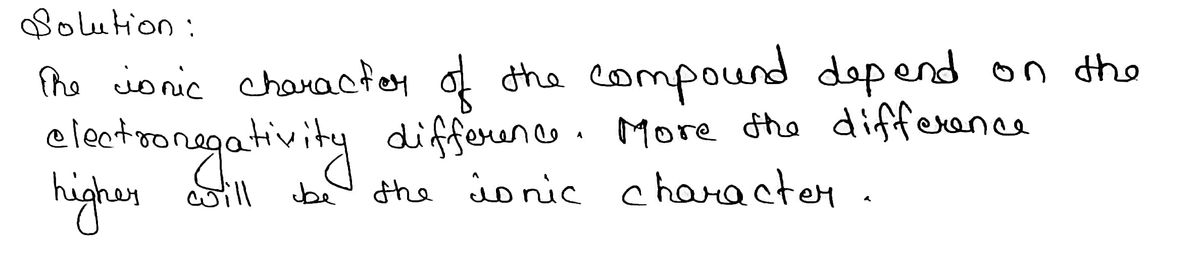 Solution:
The ionic character of the compound depend on the
electronegativity difference. More the difference
higher will be the ionic character.